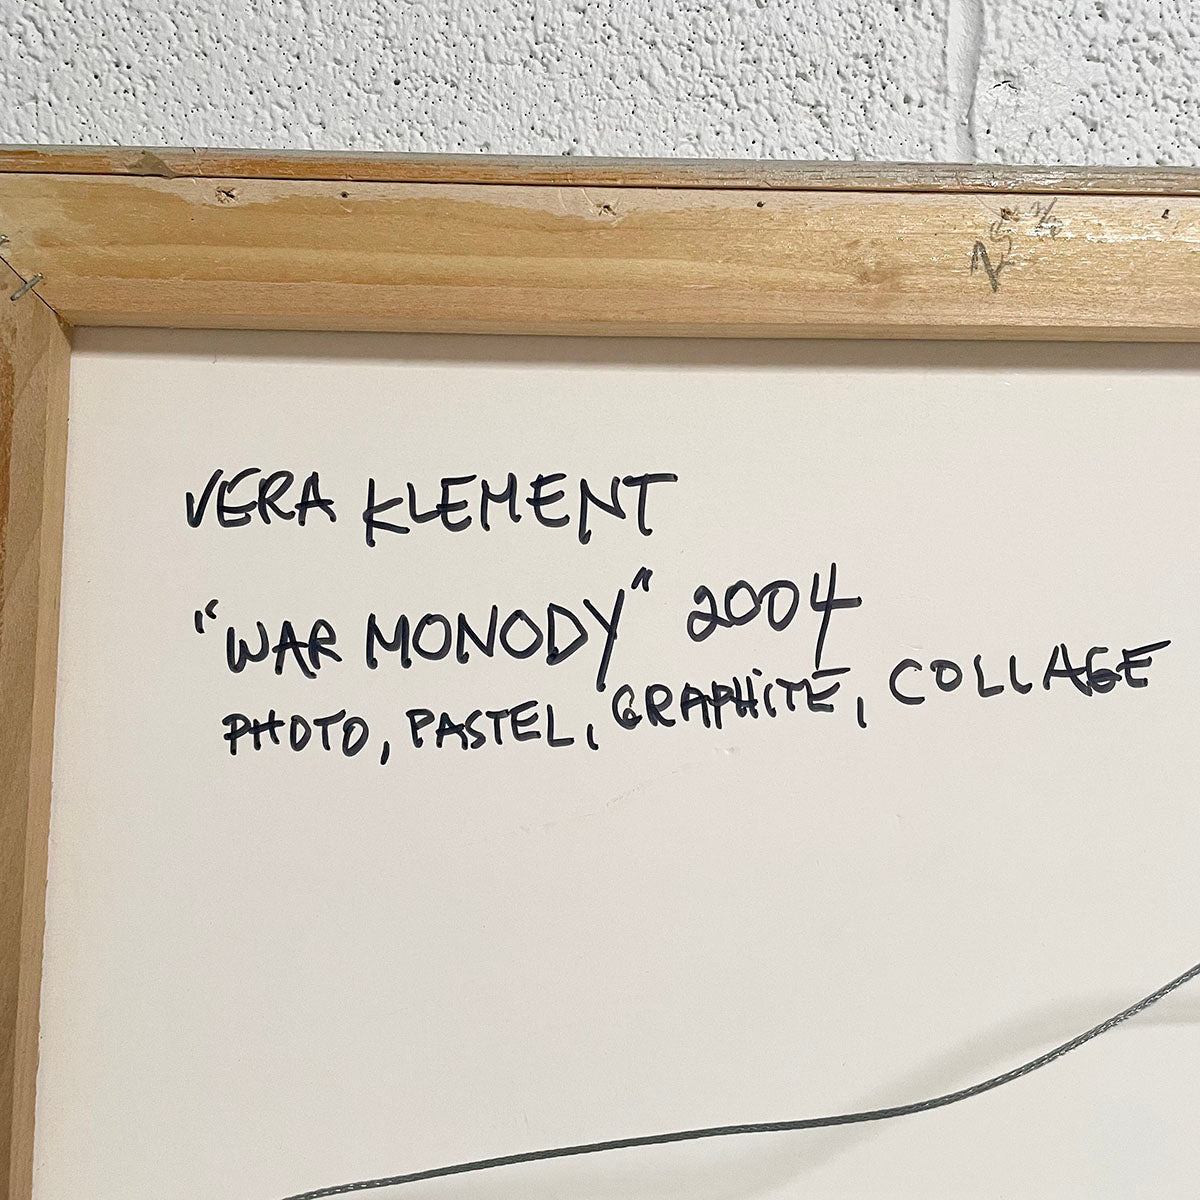 VERA KLEMENT
"WAR MONODY" 2004
PHOTO, PASTEL, GRAPHITE, COLLAGE